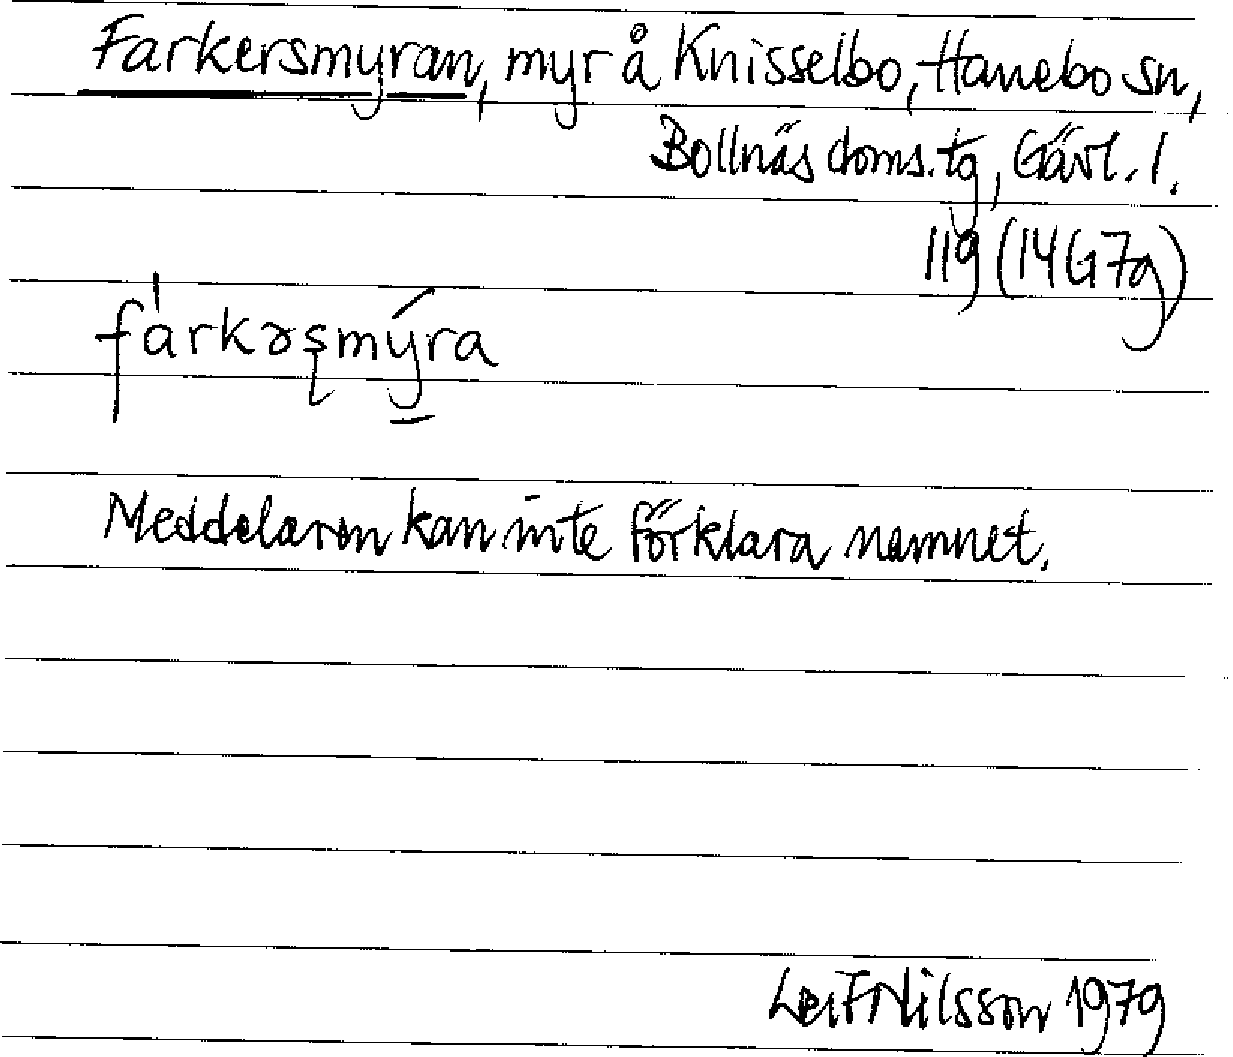 Farkersmyran, myr å Knisselbo, Hanebo sn,
Bollnäs doms.tg, Gävl. l.
11g (14G7g)
fárkəʂmý̱ra
Meddelaren kan inte förklara namnet.
Leif Nilsson 1979